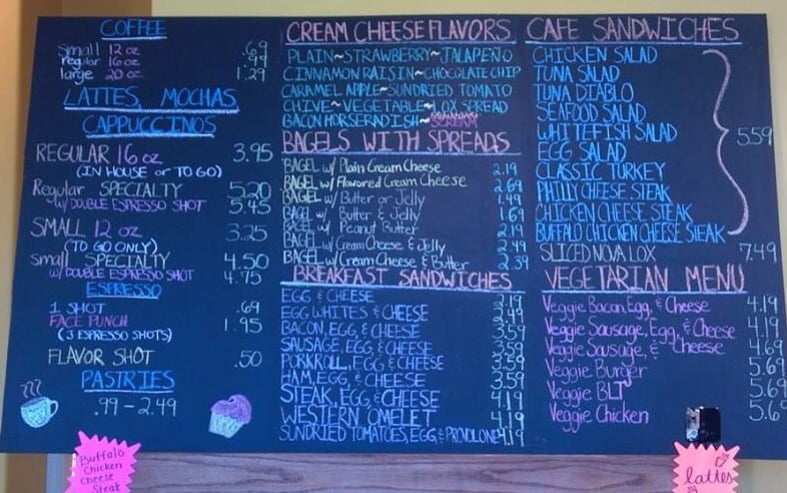 COFFEE
Small 12 oz .69
regular 16 oz .99
large 20 oz 1.29
LATTES, MOCHAS,
CAPPUCCINOS
REGULAR 16 oz 3.95
(IN HOUSE or TO GO)
Regular SPECIALTY 5.20
w/DOUBLE ESPRESSO SHOT 5.45
SMALL 12 oz 3.25
(TO GO ONLY)
Small SPECIALTY 4.50
w/DOUBLE ESPRESSO SHOT 4.75
ESPRESSO
1 SHOT .69
FACE PUNCH 1.95
(3 ESPRESSO SHOTS)
FLAVOR SHOT .50
PASTRIES
.99 - 2.49
Buffalo
Chicken
Cheese
Steak
CREAM CHEESE FLAVORS
PLAIN~STRAWBERRY~JALAPEÑO
CINNAMON RAISIN~CHOCOLATE CHIP
CARAMEL APPLE~SUNDRIED TOMATO
CHIVE~VEGETABLE~LOX SPREAD
BACON HORSERADISH~
BAGELS WITH SPREADS
BAGEL w/ Plain Cream Cheese 2.19
BAGEL w/ Flavored Cream Cheese 2.69
BAGEL w/ Butter or Jelly 1.49
BAGEL w/ Butter & Jelly 1.69
BAGEL w/ Peanut Butter 2.19
BAGEL w/ Cream Cheese & Jelly 2.49
BAGEL w/ Cream Cheese & Butter 2.39
BREAKFAST SANDWICHES
EGG & CHEESE 2.19
EGG WHITES & CHEESE
BACON, EGG & CHEESE 3.59
SAUSAGE, EGG & CHEESE
PORKROLL, EGG & CHEESE 3.59
HAM, EGG, & CHEESE 3.59
STEAK, EGG & CHEESE 4.19
WESTERN OMELET 4.19
SUNDRIED TOMATOES, EGG & PROVOLONE 4.19
CAFE SANDWICHES
CHICKEN SALAD
TUNA SALAD
TUNA DIABLO
SEAFOOD SALAD
WHITEFISH SALAD
EGG SALAD
CLASSIC TURKEY
PHILLY CHEESE STEAK
CHICKEN CHEESE STEAK
BUFFALO CHICKEN CHEESE STEAK
5.59
SLICED NOVA LOX 7.49
VEGETARIAN MENU
Veggie Bacon, Egg, & Cheese 4.19
Veggie Sausage, Egg, & Cheese 4.19
Veggie Sausage, & Cheese 4.69
Veggie Burger 5.69
Veggie BLT 5.69
Veggie Chicken 5.6
lattes